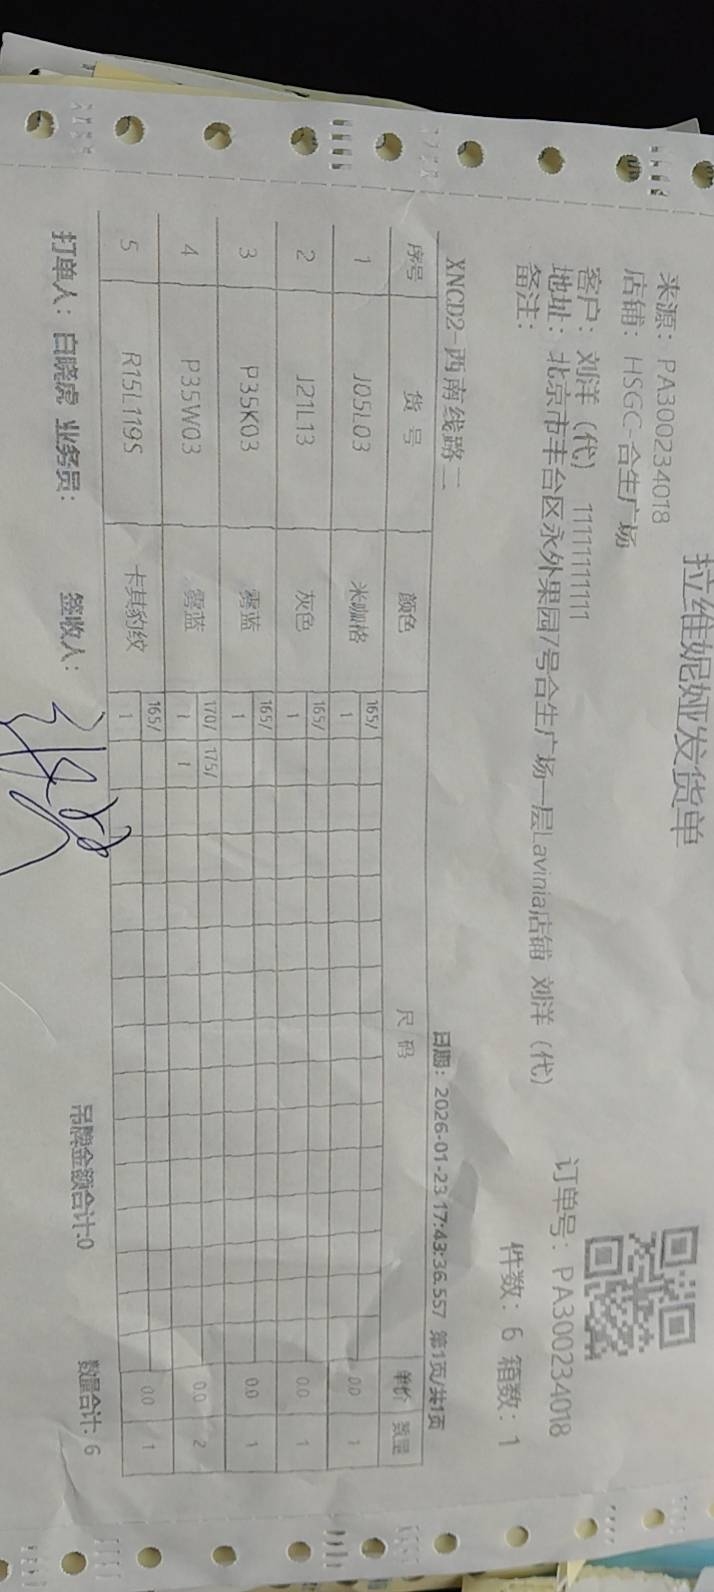 拉维妮娅发货单
来源：PA300234018
店铺：HSGC-合生广场
客户：刘洋（代） 11111111111
订单号：PA300234018
地址：北京市丰台区永外果园7号合生广场一层Lavinia店铺 刘洋（代）
备注：
件数：6 箱数：1
XNCD2-西南线路二
日期：2026-01-23 17:43:36.557 第1页/共1页
序号 货号 颜色 尺码 单价 数量
1 J05L03 米咖格 165/ 0.0 1
1
2 J21L13 灰色 165/ 0.0 1
1
3 P35K03 雾蓝 165/ 0.0 1
1
4 P35W03 雾蓝 170/ 175/ 0.0 2
1 1
5 R15L119S 卡其豹纹 165/ 0.0 1
1
打单人：白晓虎 业务员： 签收人： 吊牌金额合计:0 数量合计: 6